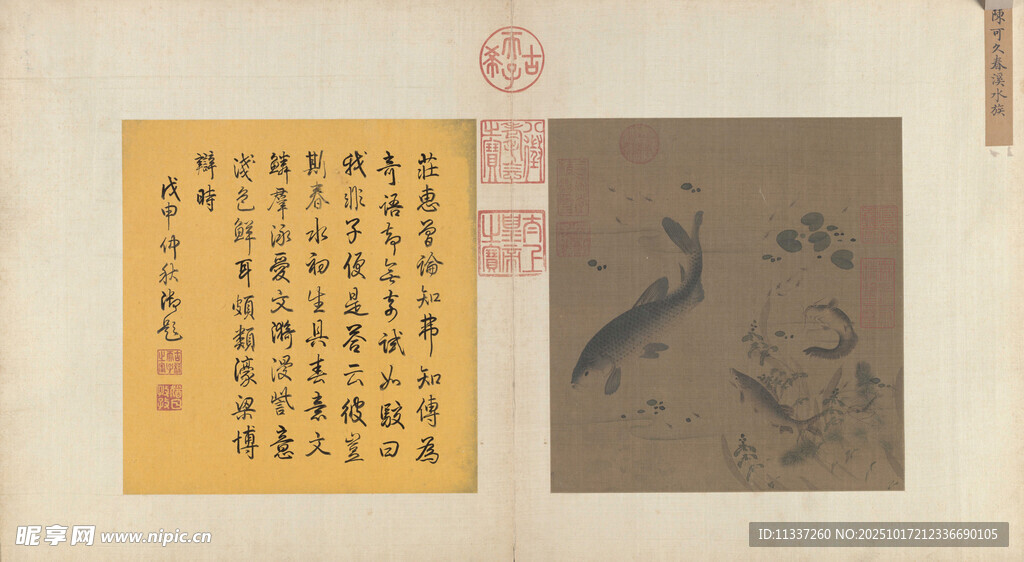 陳可久春溪水族
古希天子
八徵耄念之寶
太上皇帝之寶
莊惠曾論知弗知傳為
奇語却無奇試如駮曰
我非子便是荅云彼豈
斯春水初生具春意文
鱗羣泳愛文漪漫訾意
淺色鮮耳頗類濠梁博
辯時
戊申仲秋御題
昵享网 www.nipic.cn
ID:11337260 NO:20251017212336690105